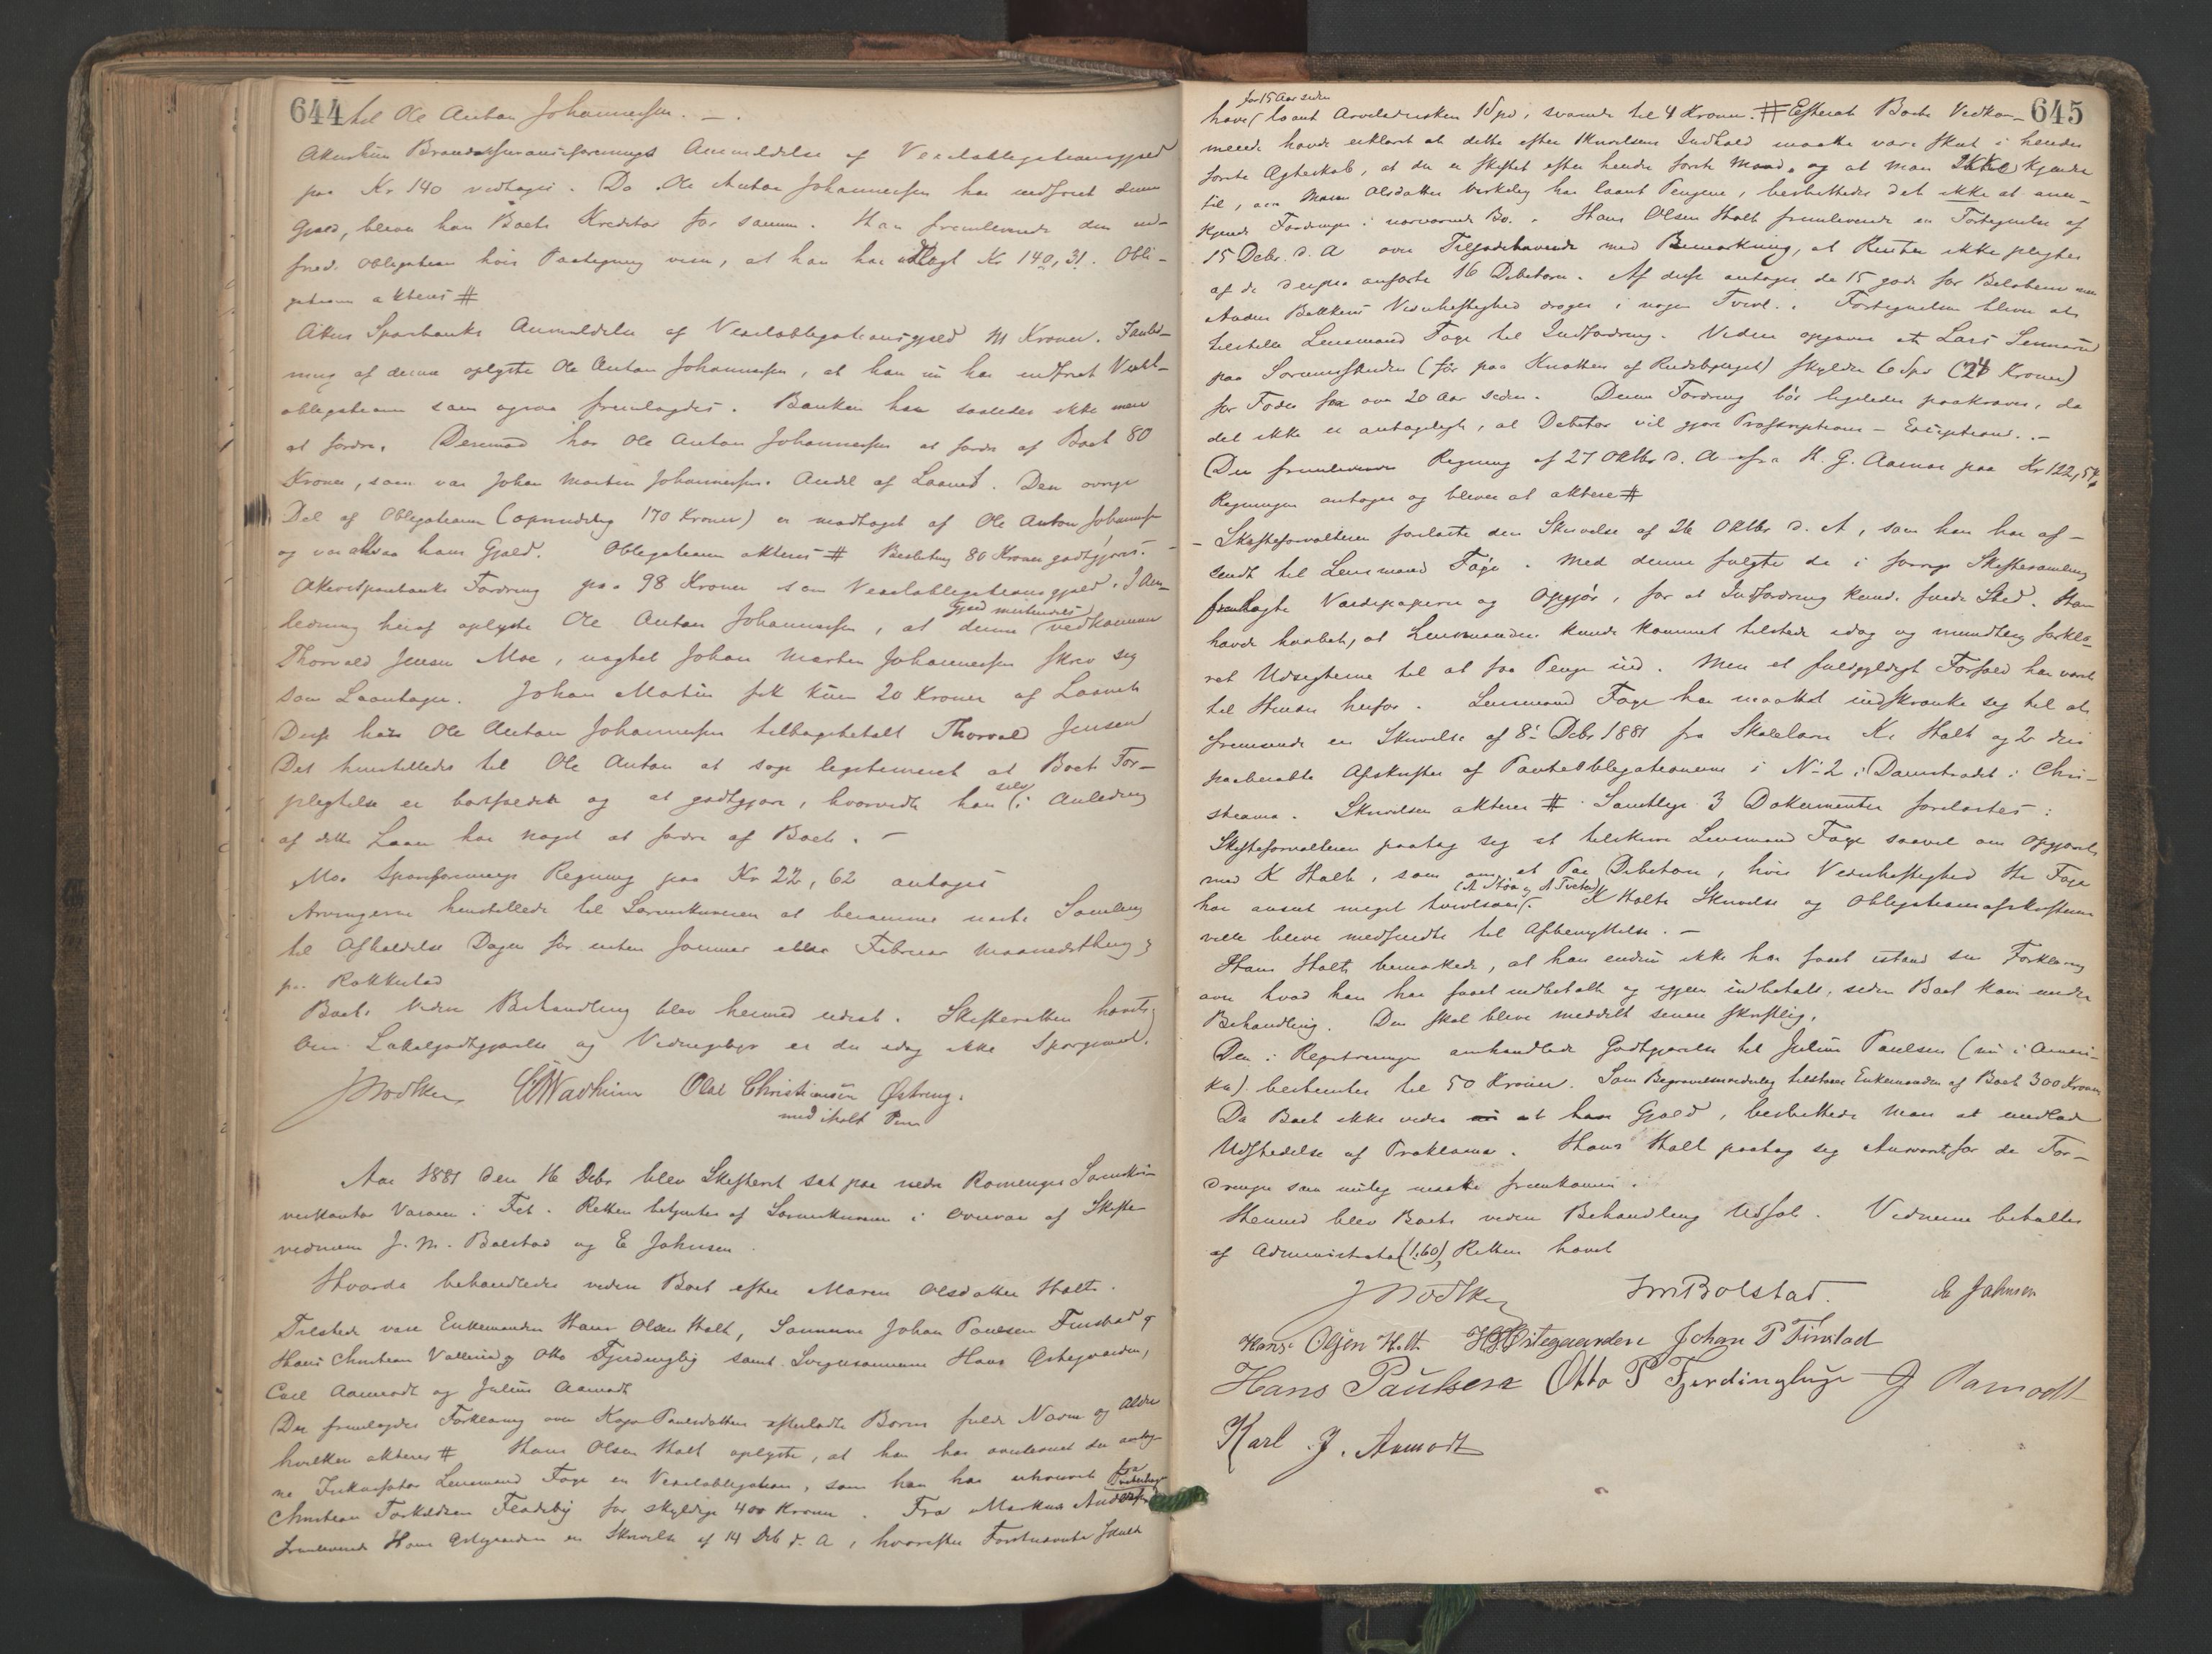 644 til Ole Anton Johannessen. — .
Akershus Brandassuranceforenings Anmeldelse af Vexelobligationsgjæld
paa Kr 140 vedtages. Da Ole Anton Johannessen har indfriet denne
Gjæld, bliver han Boets Kreditor for samme. Han fremleverede den ind-
friede Obligation hvis Paategning viser, at han har udlagt Kr 140,31. Obli-
gationen akteres #
Akers Sparebanks Anmeldelse af Vexelobligationsgjæld Kroner. I Anled-
ning af denne oplyste Ole Anton Johannessen, at han nu har indfriet Vexel-
obligationen som ogsaa fremlagdes. Banken har saaledes ikke mere
at fordre. Derimod har Ole Anton Johannessen at fordre af Boet 80
Kroner, som var Johan Martin Johannessens Andel af Laanet. Den øvrige
Del af Obligationen (oprindelig 170 Kroner) er modtaget af Ole Anton Johannessen
og var altsaa hans Gjæld. Obligationen akteres # Beslutning 80 Kroner godtgjøres.
Akers Sparebanks Fordring paa 98 Kroner som Vexelobligationsgjæld. I An-
ledning heraf oplyste Ole Anton Johannessen, at denne Gjæld vedkommer
Thorvald Jensen Moe, uagtet Johan Martin Johannessen skrev sig
som Laantager. Johan Martin fik kun 20 Kroner af Laanet
Disse har Ole Anton Johannessen tilbagebetalt Thorvald Jensen
Det henstilledes til Ole Anton at søge legitimeret at Boets For-
pligtelse er bortfaldt og at godtgjøre, hvorvidt han selv i Anledning
af dette Laan har noget at fordre af Boet. —
Moe Spareforenings Regning paa Kr 22,62 antages
Arvingerne henstillede til Sorenskriveren at beramme næste Samling
til Afholdelse Dagen før enten Januar eller Februar Maanedsthing
paa Rakkestad
Boets videre Behandling blev hermed udsat. Skifteretten hævet.
Om Lokalgodtgjørelse og Vidnegebyr er der idag ikke Spørgsmaal.
J Bødtker Olai Christiansen Østreng.
med iholdt Pen
Aar 1881 den 16 Debr blev Skifteret sat paa nedre Romeriges Sorenskri-
verkontor Varaaen i Fet. Retten betjentes af Sorenskriveren i Overvær af Skifte-
vidnerne J. M. Bolstad og E Johnsen.
Hvorda behandledes videre Boet efter Maren Olsdatter Holt.
Tilstede vare Enkemanden Hans Olsen Holt, Sønnerne Johan Paulsen Finstad,
Hans Christian og Otto Fjerdingby samt Svigersønnerne Hans Østegaarden,
Carl Aamodt og Julius Aamodt
Der fremlagdes Forklaring over Kaja Paulsdatters efterladte Børns fulde Navne og Aldre
hvilken akteres # Hans Olsen Holt oplyste, at han har overleveret den antag-
ne Inkassator Lensmand Faye en Vexelobligation, som han har erhvervet fra
Christian Torkildsen Fladeby for skyldige 400 Kroner. Fra Markus Andersen
fremleverede Hans Østegaarden en Skrivelse af 14 Deb d. A, hvorefter Fornævnte skulde
645
have for 15 Aar siden laant Arveladersken 1 Spd, svarende til 4 Kroner. # Efterat Boets Vedkom-
mende havde erklæret at dette efter Skrivelsens Indhold maatte være skeet i hendes
første Ægteskab, at der er skiftet efter hendes første Mand, og at man ikke kjender
til, om Maren Olsdatter virkelig har laant Pengene, besluttedes det ikke at aner-
kjende Fordringen i nærværende Bo. Hans Olsen Holt fremleverede en Fortegnelse af
15 Debr. d. A over Tilgodehavende med Bemærkning, at Renter ikke pligtes
af de derpaa anførte 16 Debitorer. Af disse antages de 15 gode for Beløbene men
Anders Bakkens Vederheftighed drages i nogen Tvivl. Fortegnelsen bliver at
tilstille Lensmand Faye til Indfordring. Videre opgaves at Lars
paa Sørumssanden (før paa Knatten af ) skylder 6 Spd (24 Kroner)
for Foder for over 20 Aar siden. Denne Fordring bør ligeledes paakræves, da
det ikke er antageligt, at Debitor vil gjøre Præskriptions-Exceptionen. —
Der fremleveredes Regning af 27 Oktbr d. A fra H. G. Aamot paa Kr 122,54.
Regningen antages og bliver at aktere #
— Skifteforvalteren forelæste den Skrivelse af 26 Oktbr d. A, som han har af-
sendt til Lensmand Faye. Med denne fulgte de i forrige Skiftesamling
fremlagte Værdipapirer og Opgjør, for at Indfordring kunde finde Sted. Han
havde haabet, at Lensmanden kunde kommet tilstede idag og mundtlig forkla-
ret Udsigterne til at faa Penge ind. Men et fuldgyldigt Forfald har været
til Hinder herfor. Lensmand Faye har maattet indskrænke sig til at
fremsende en Skrivelse af 8de Debr 1881 fra Skolelærer K. Holt og 2 deri
paaberaabte Afskrifter af Pantobligationerne i No 2 i Damstrædet i Chri-
stiania. Skrivelsen akteres # Samtlige 3 Dokumenter forelæstes:
Skifteforvalteren paatog sig at tilskrive Lensmand Faye saavel om Opgjøret
med K Holt, som om et Par Debitorer, hvis Vederheftighed Hr Faye
har anseet meget tvivlsom. K Holts Skrivelse og Obligationsafskrifterne
ville blive medsendte til Afbenyttelse. —
Hans Holt bemærkede, at han endnu ikke har faaet istand sin Forklaring
over hvad han har faaet indbetalt og igjen udbetalt, siden Boet kom under
Behandling. Den skal blive meddelt senere skriftlig.
Den i Registreringen omhandlede Godtgjørelse til Julius Paulsen (nu i Ameri-
ka) bestemtes til 50 Kroner. Som Begravelsesudlæg tilstaaes Enkemanden af Boet 300 Kroner
Da Boet ikke vides at have Gjæld, besluttede man at undlade
Udstedelse af Proklama. Hans Holt paatog sig Ansvaret for de For-
dringer som mulig maatte fremkomme.
Hermed blev Boets videre Behandling udsat. Vidnerne betaltes
af Administrator (1,60), Retten hævet
J Bødtker JMBolstad. E Johnsen
Hans Olsen Holt H Østegaarden Johan P Finstad
Hans Paulsen Otto P Fjerdingbye J Aamodt
Karl J. Aamodt